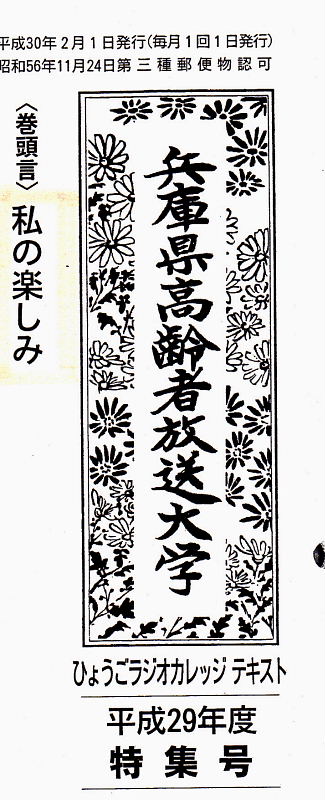 平成30年2月1日発行(毎月1回1日発行)
昭和56年11月24日第三種郵便物認可
兵庫県高齢者放送大学
ひょうごラジオカレッジ テキスト
平成29年度
特集号
〈巻頭言〉 私の楽しみ